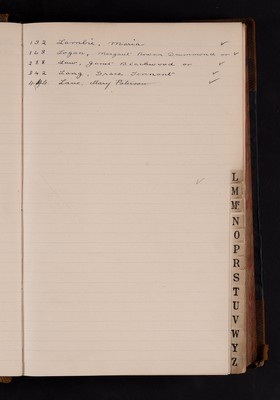 132 Lambie, Maria ✓
168 Logan, Margaret Brown Drummond or ✓
288 Low, Janet Blackwood or ✓
342 Long, Grace Tennant ✓
444 Law, Mary Paterson ✓
L
M
Mc
N
O
P
R
S
T
U
V
W
Y
Z